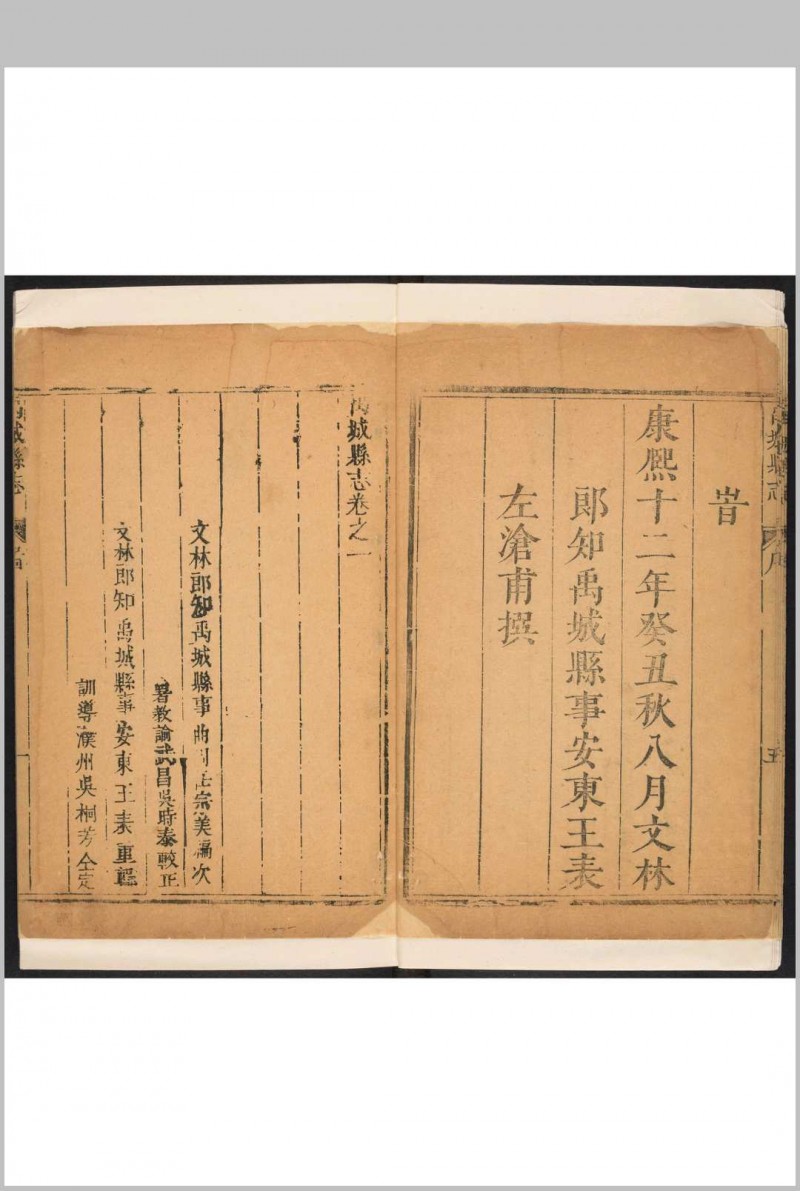 旹
康熙十二年癸丑秋八月文林
郎知禹城縣事安東王表
左滄甫撰
禹城縣志卷之一
文林郎知禹城縣事曲周王宗美編次
署教諭武昌吳時泰較正
文林郎知禹城縣事安東王表重輯
訓導濮州吳桐芳仝定
城縣志